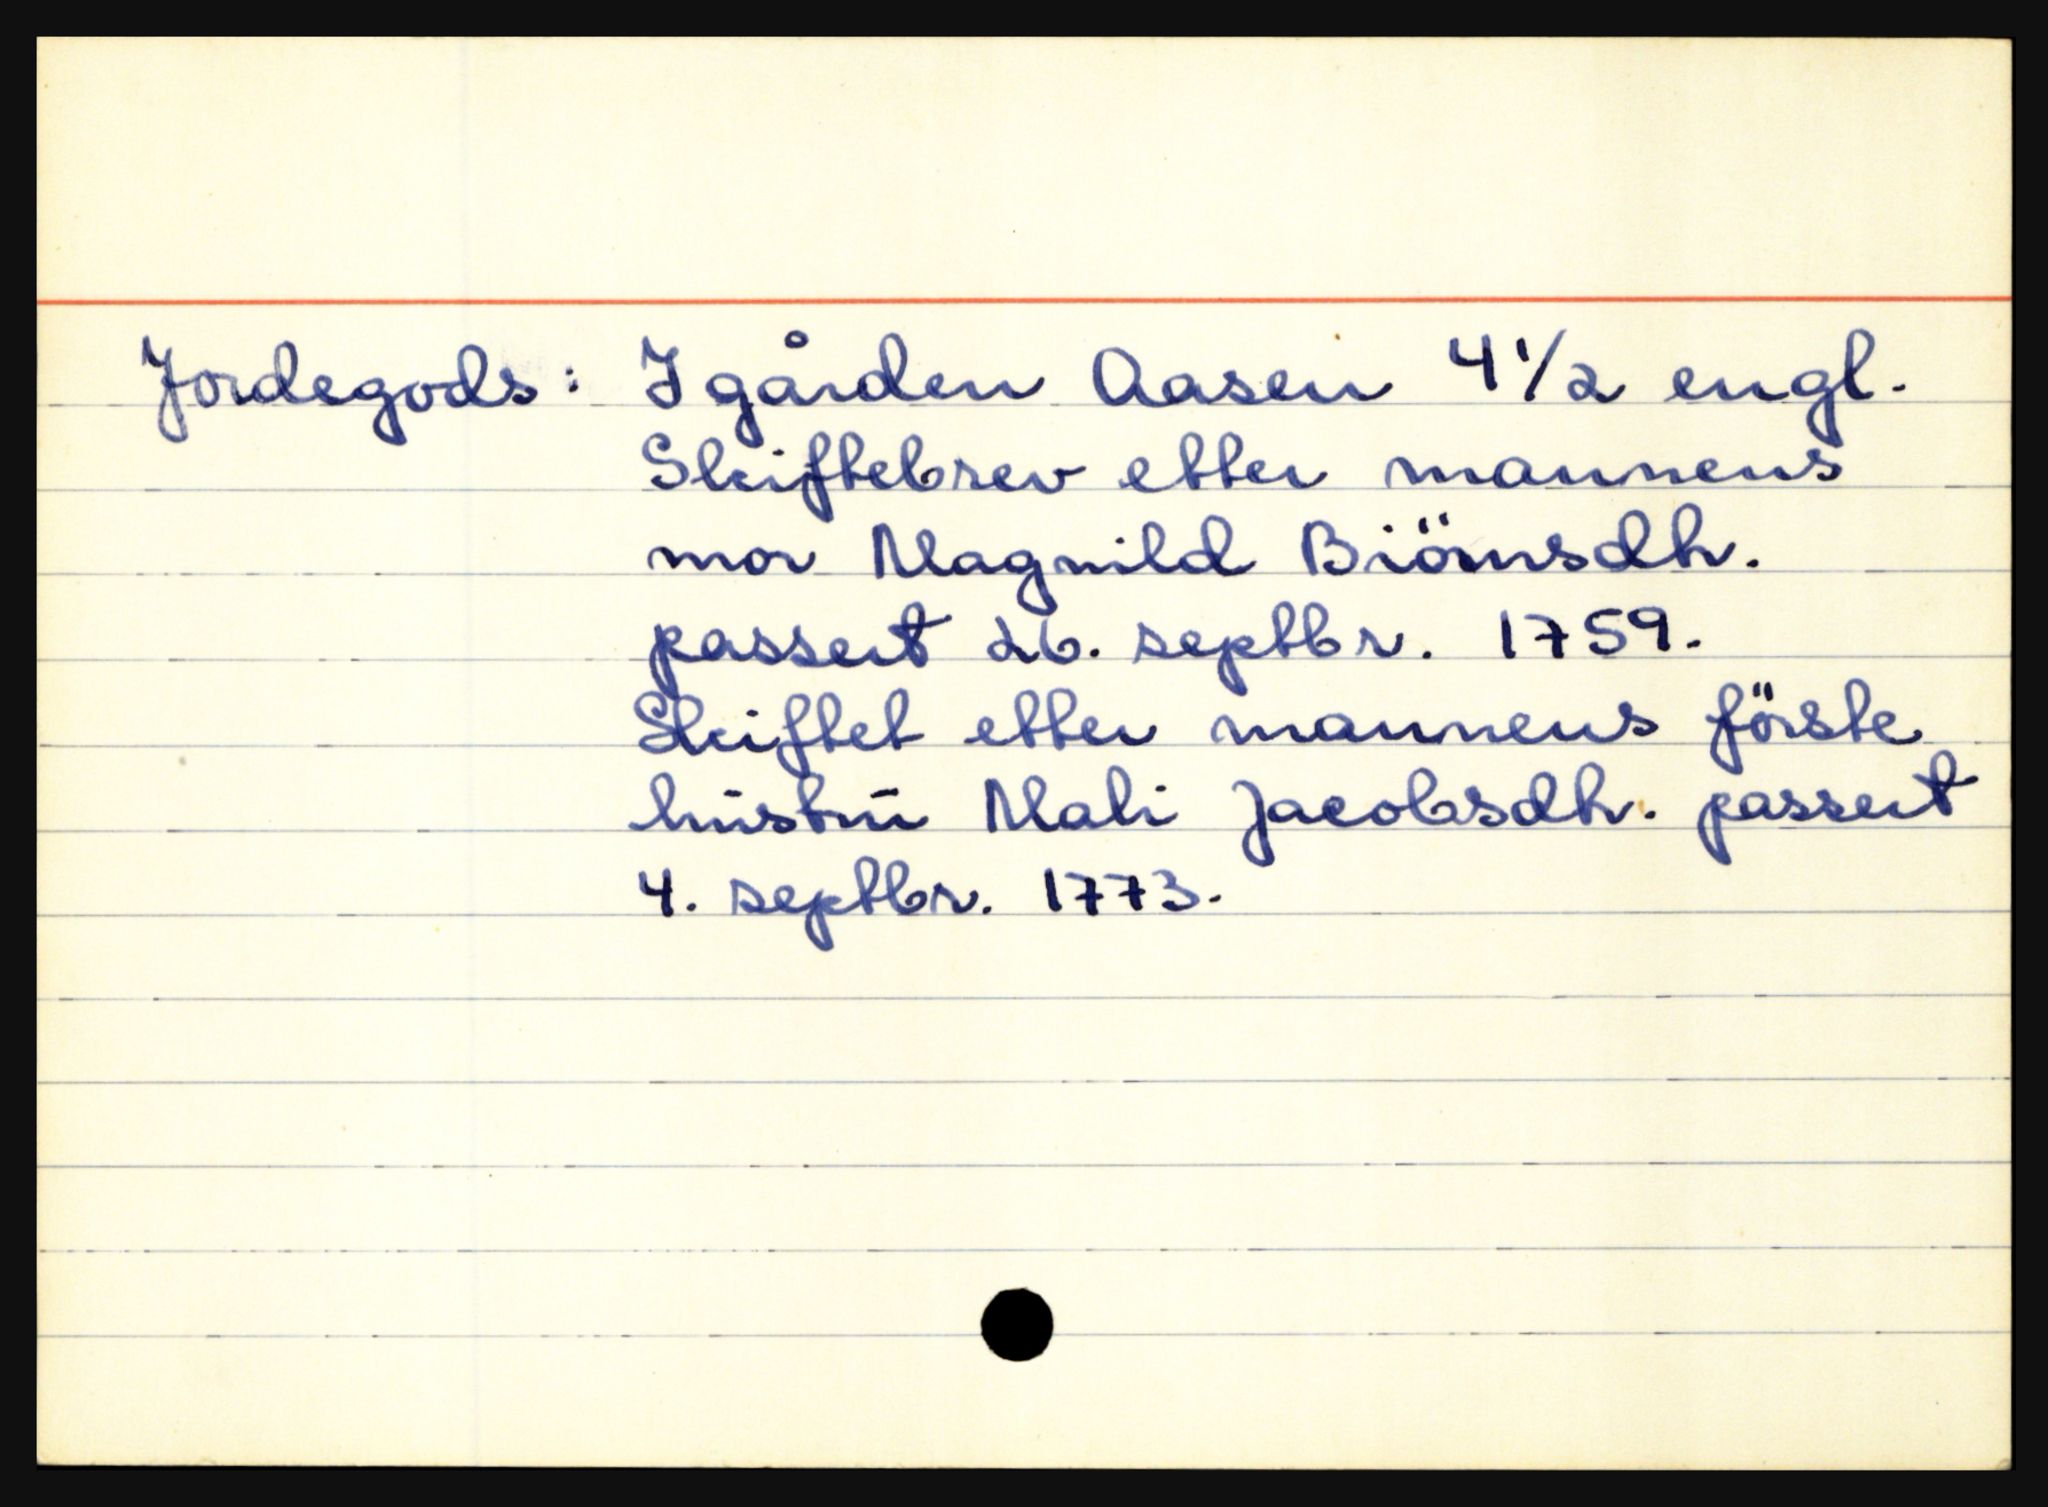 Jordegods: I gården Aasen 4 1/2 engl.
Skiftebrev etter mannens
mor Magnild Biörnsdtr.
passert 26. septbr. 1759.
Skiftet etter mannens förste
hustru Mali Jacobsdtr. passert
4. septbr. 1773.